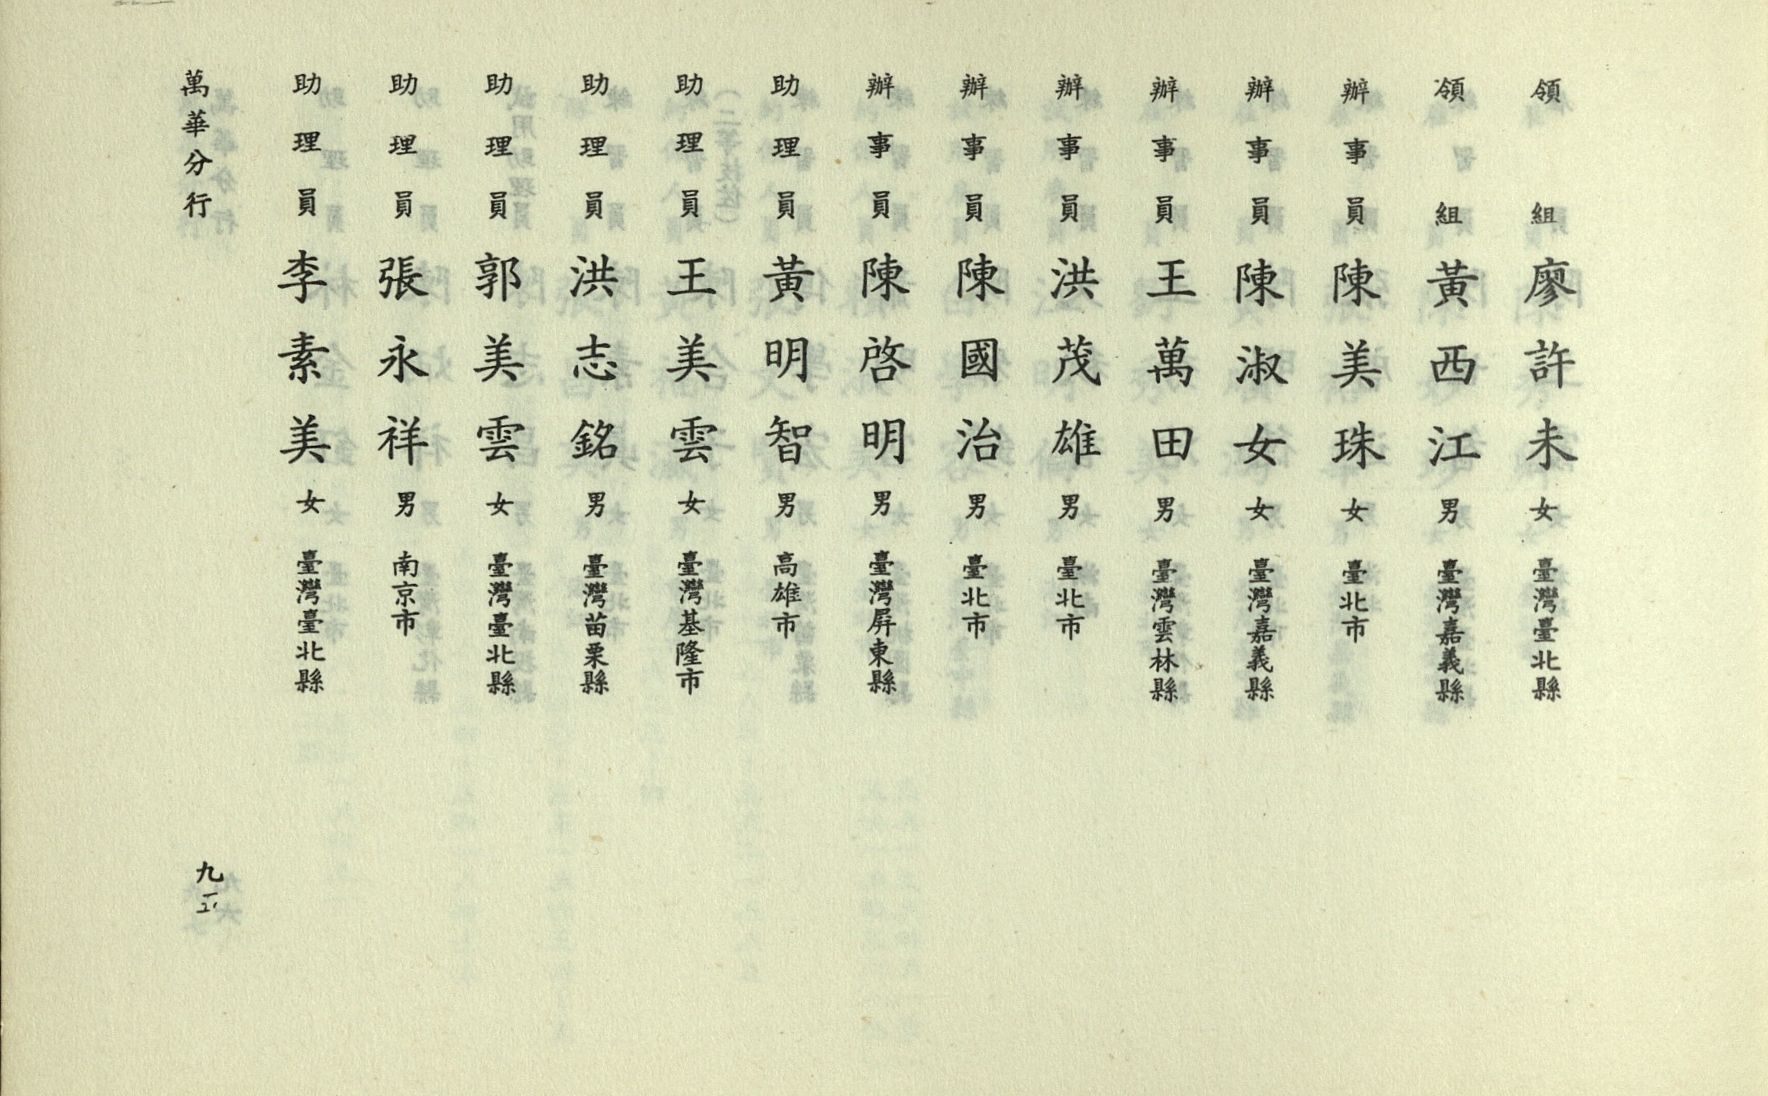 領組廖許未女臺灣臺北縣
領組黃西江男臺灣嘉義縣
辦事員陳美珠女臺北市
辦事員陳淑女女臺灣嘉義縣
辦事員王萬田男臺灣雲林縣
辦事員洪茂雄男臺北市
辦事員陳國治男臺北市
辦事員陳啓明男臺灣屏東縣
助理員黃明智男高雄市
助理員王美雲女臺灣基隆市
助理員洪志銘男臺灣苗栗縣
助理員郭美雲女臺灣臺北縣
助理員張永祥男南京市
助理員李素美女臺灣臺北縣
萬華分行
九